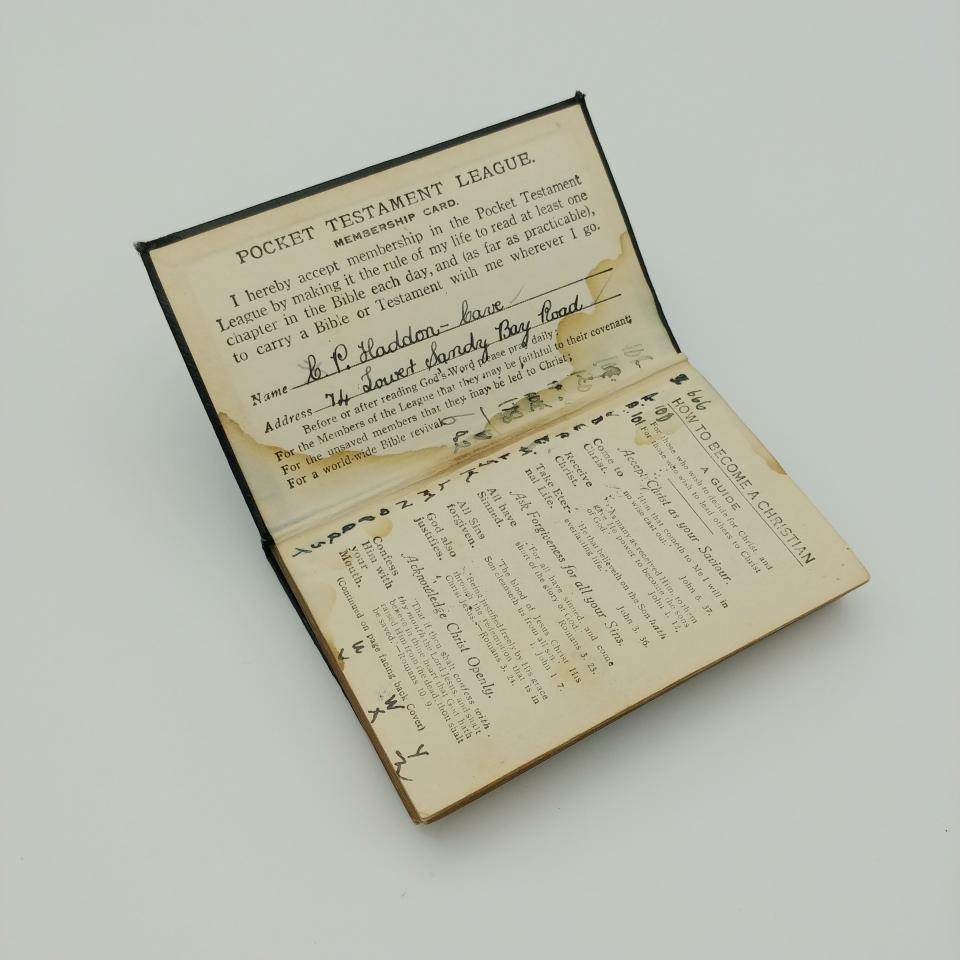 POCKET TESTAMENT LEAGUE.
MEMBERSHIP CARD.
I hereby accept membership in the Pocket Testament
League by making it the rule of my life to read at least one
chapter in the Bible each day, and (as far as practicable),
to carry a Bible or Testament with me wherever I go.
Name C. P. Haddon-Cave
Address 74 Lower Sandy Bay Road
Before or after reading God's Word please pray daily:
For the Members of the League that they may be faithful to their covenant;
For the unsaved members that they may be led to Christ;
For a world-wide Bible revival.
666
HOW TO BECOME A CHRISTIAN
A GUIDE
For those who wish to decide for Christ, and
For those who wish to lead others to Christ
Accept Christ as your Saviour.
Come to Christ.
"Him that cometh to Me I will in
no wise cast out." John 6. 37.
Receive Christ.
"As many as received Him, to them
gave He power to become the sons
of God." John 1. 12.
Take Eternal Life.
"He that believeth on the Son hath
everlasting life." John 3. 36.
Ask Forgiveness for all your Sins.
All have Sinned.
"For all have sinned, and come
short of the glory of God." Romans 3. 23.
All Sins forgiven.
"The blood of Jesus Christ His
Son cleanseth us from all sin." 1 John 1. 7.
God also justifies.
"Being justified freely by His grace
through the redemption that is in
Christ Jesus."—Romans 3. 24.
Acknowledge Christ Openly.
Confess Him with your Mouth.
"That if thou shalt confess with
thy mouth the Lord Jesus, and shalt
believe in thine heart that God hath
raised Him from the dead, thou shalt
be saved."—Romans 10. 9.
(Continued on page facing back Cover)
W
X
Y